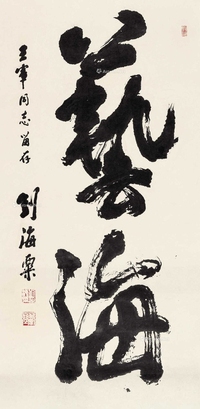 藝海
王宰同志留存 刘海粟